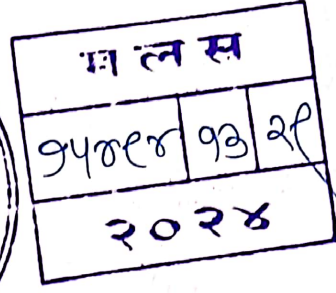 म ल स
१५४९४ १३ २९
२०२४